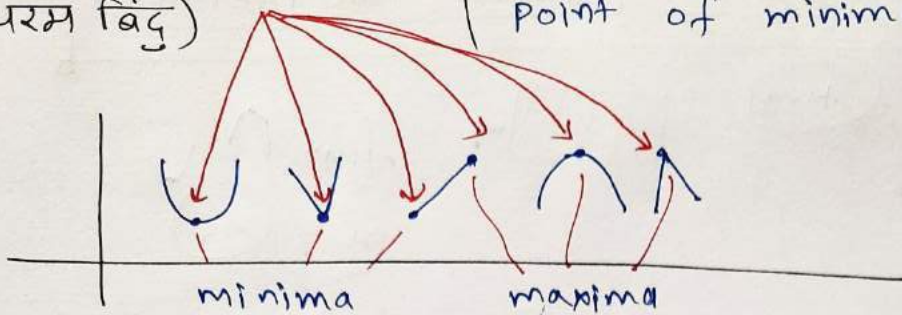 परम बिंदु)
Point of minim
minima
maxima